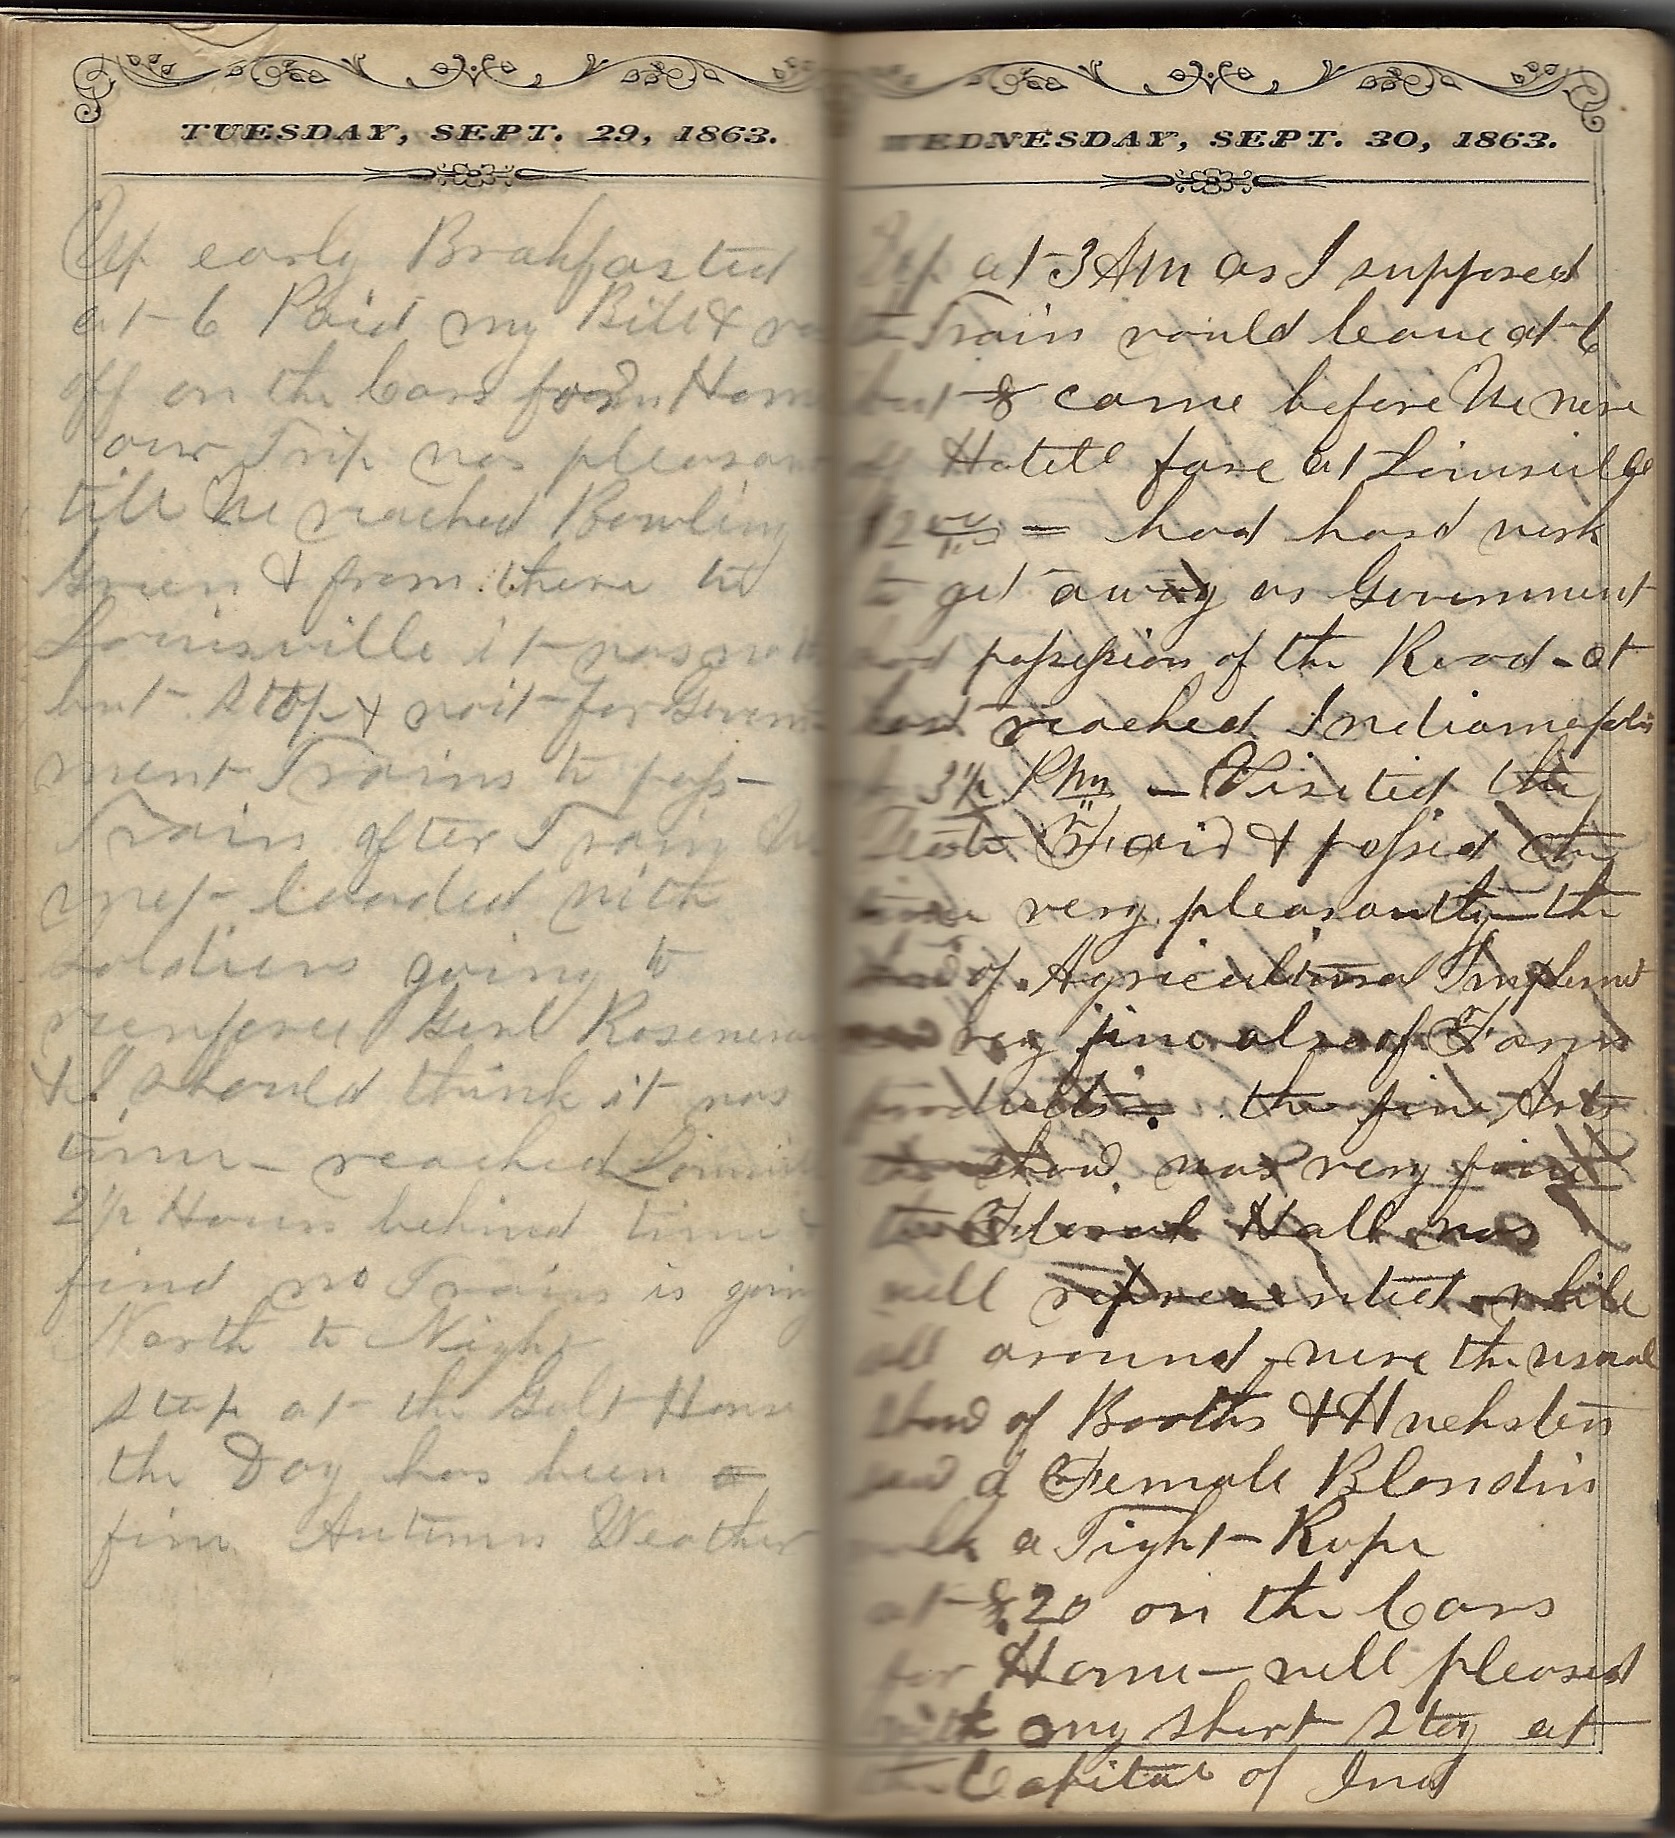 TUESDAY, SEPT. 29, 1863.
Up early Brakfasted
at 6 Paid my Bill &
off on the Cars for Hom
our Trip was pleasan
till We reached Bowling
Green & from there to
Louisville it was
but stop & wait for Govern
ment Trains to pass
Train after Train We
met loaded with
soldiers going to
reenforce Genl Rosencra
& I should think it was
time - reached Louisvill
2 1/2 Hours behind time &
find no Trains is going
North to Night
stop at the Galt House
the Day has been a
fine Autumn Weather
WEDNESDAY, SEPT. 30, 1863.
Up at 3 AM as I supposed
Train would leave at 6
but 8 came before We were
Hotell fare at Louisville
= had hard work
to get away as Government
had possession of the Road - at
last reached Indianapolis
3 1/2 PM - Visited the
State Fair & passed the
time very pleasantly - the
show of Agricultural Implemt
was very fine also of Farm
products = the fine Arts
show was very fine
the Floral Hall was
well represented while
all around were the usual
show of Booths & Huckster
saw a Female Blondin
walk a Tight Rope
at 8.20 on the Cars
for Home - well pleased
with my short stay at
the Capital of Ind